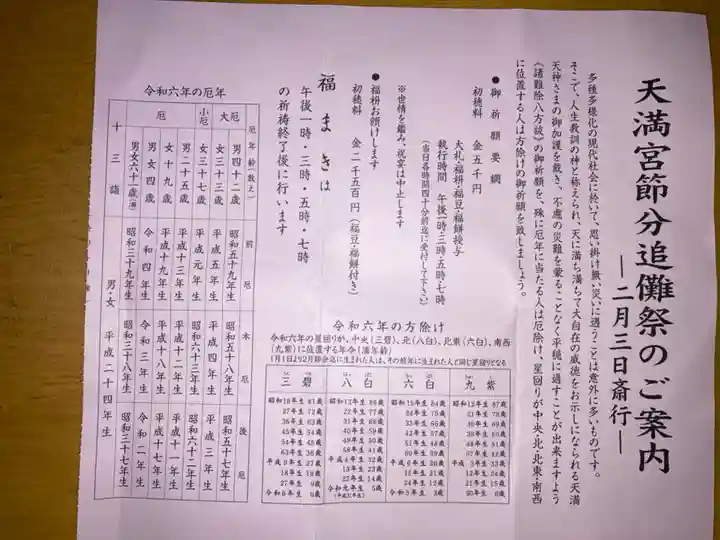 天満宮節分追儺祭のご案内
―二月三日斎行―
多種多様化の現代社会に於いて、思い掛け無い災いに遇うことは意外に多いものです。
そこで、人生教訓の神と称えられ、天に満ち満ちて大自在の威徳をお示しになられる天満
天神さまの御加護を戴き、不慮の災難を蒙ることなく平穏に過すことが出来ますよう
《諸難除八方祓》の御祈願を、殊に厄年に当たる人は厄除け、星回りが中央・北・北東・南西
に位置する人は方除けの御祈願を致しましょう。
●御祈願要綱
初穂料 金五千円
大札・福枡・福豆・福餅授与
執行時間 午後一時・三時・五時・七時
(当日各時間四十分前迄に受付して下さい)
※世情を鑑み、祝宴は中止します
●福枡お頒けします
初穂料 金二千五百円(福豆・福餅付き)
福まきは
午後一時・三時・五時・七時
の祈祷終了後に行います
令和六年の厄年
厄年齢(数え) 前厄 本厄 後厄
大厄 男四十二歳 昭和五十九年生 昭和五十八年生 昭和五十七年生
女三十三歳 平成五年生 平成四年生 平成三年生
小厄 女三十七歳 平成元年生 昭和六十三年生 昭和六十二年生
厄 男二十五歳 平成十三年生 平成十二年生 平成十一年生
女十九歳 平成十九年生 平成十八年生 平成十七年生
男女四歳 令和四年生 令和三年生 令和二年生
男女六十一歳 昭和三十九年生 昭和三十八年生 昭和三十七年生
十三詣 男・女 平成二十四年生
令和六年の方除け
令和六年の星回りが、中央(三碧)、北(八白)、北東(六白)、南西
(九紫)に位置する年令(満年齢)
三碧 八白 六白 九紫
昭和18年生 81歳 昭和13年生 86歳 昭和15年生 84歳 昭和12年生 87歳
27年生 72歳 22年生 77歳 24年生 75歳 21年生 78歳
36年生 63歳 31年生 68歳 33年生 66歳 30年生 69歳
45年生 54歳 40年生 59歳 42年生 57歳 39年生 60歳
54年生 45歳 49年生 50歳 51年生 48歳 48年生 51歳
63年生 36歳 58年生 41歳 60年生 39歳 57年生 42歳
平成9年生 27歳 平成4年生 32歳 平成6年生 30歳 平成3年生 33歳
18年生 18歳 13年生 23歳 15年生 21歳 12年生 24歳
27年生 9歳 22年生 14歳 24年生 12歳 21年生 15歳
令和6年生 0歳 令和元年生 5歳 令和3年生 3歳 30年生 6歳
(平成31年生)